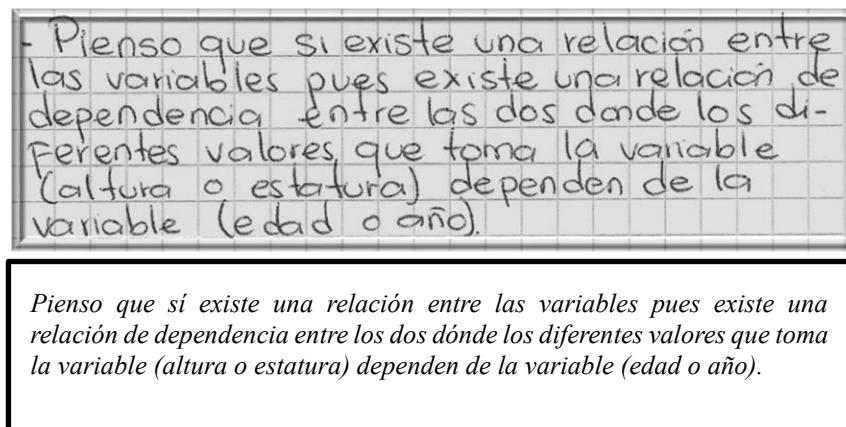 - Pienso que si existe una relación entre
las variables pues existe una relación de
dependencia entre las dos donde los di-
ferentes valores, que toma la variable
(altura o estatura) dependen de la
variable (edad o año).
Pienso que sí existe una relación entre las variables pues existe una
relación de dependencia entre los dos dónde los diferentes valores que toma
la variable (altura o estatura) dependen de la variable (edad o año).